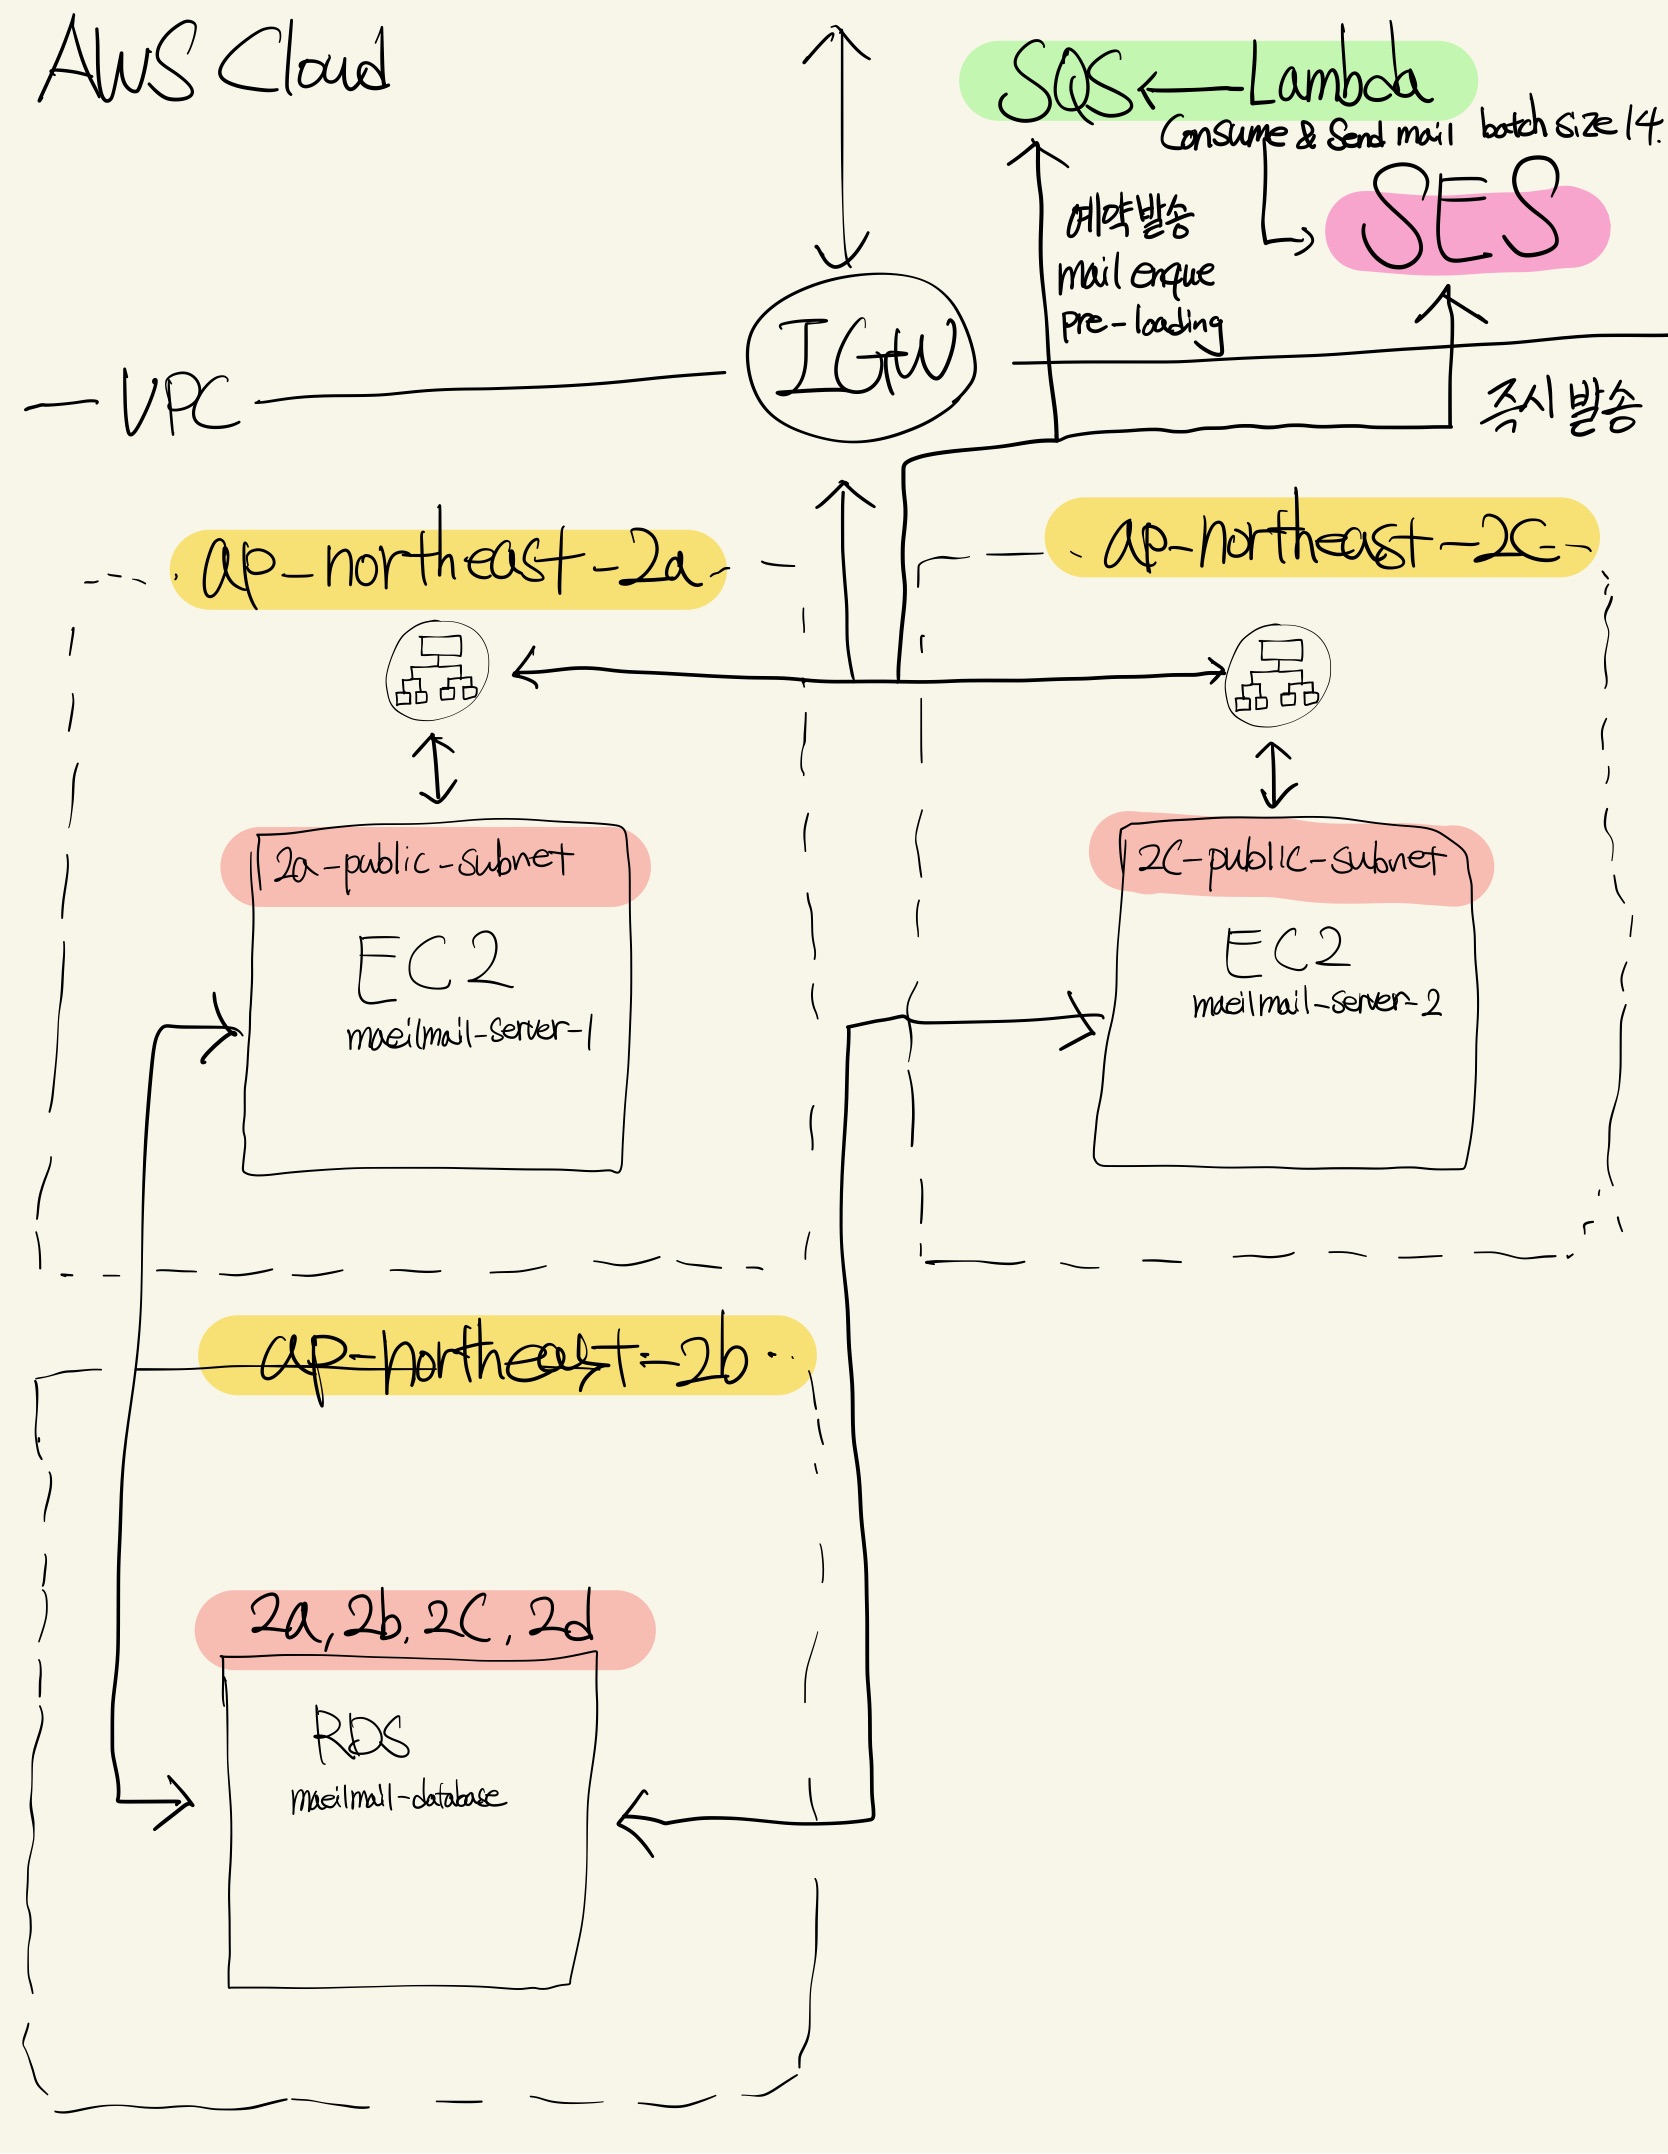 AWS Cloud
SQS Lambda
Consume & Send mail batch size 14.
SES
예약발송
mail enque
pre-loading
IGW
VPC
즉시 발송
ap-northeast-2a
ap-northeast-2c
2a-public-subnet
EC2
maeilmail-server-1
2C-public-subnet
EC2
maeilmail-server-2
ap-northeast-2b
2a, 2b, 2C, 2d
RDS
maeilmail-database